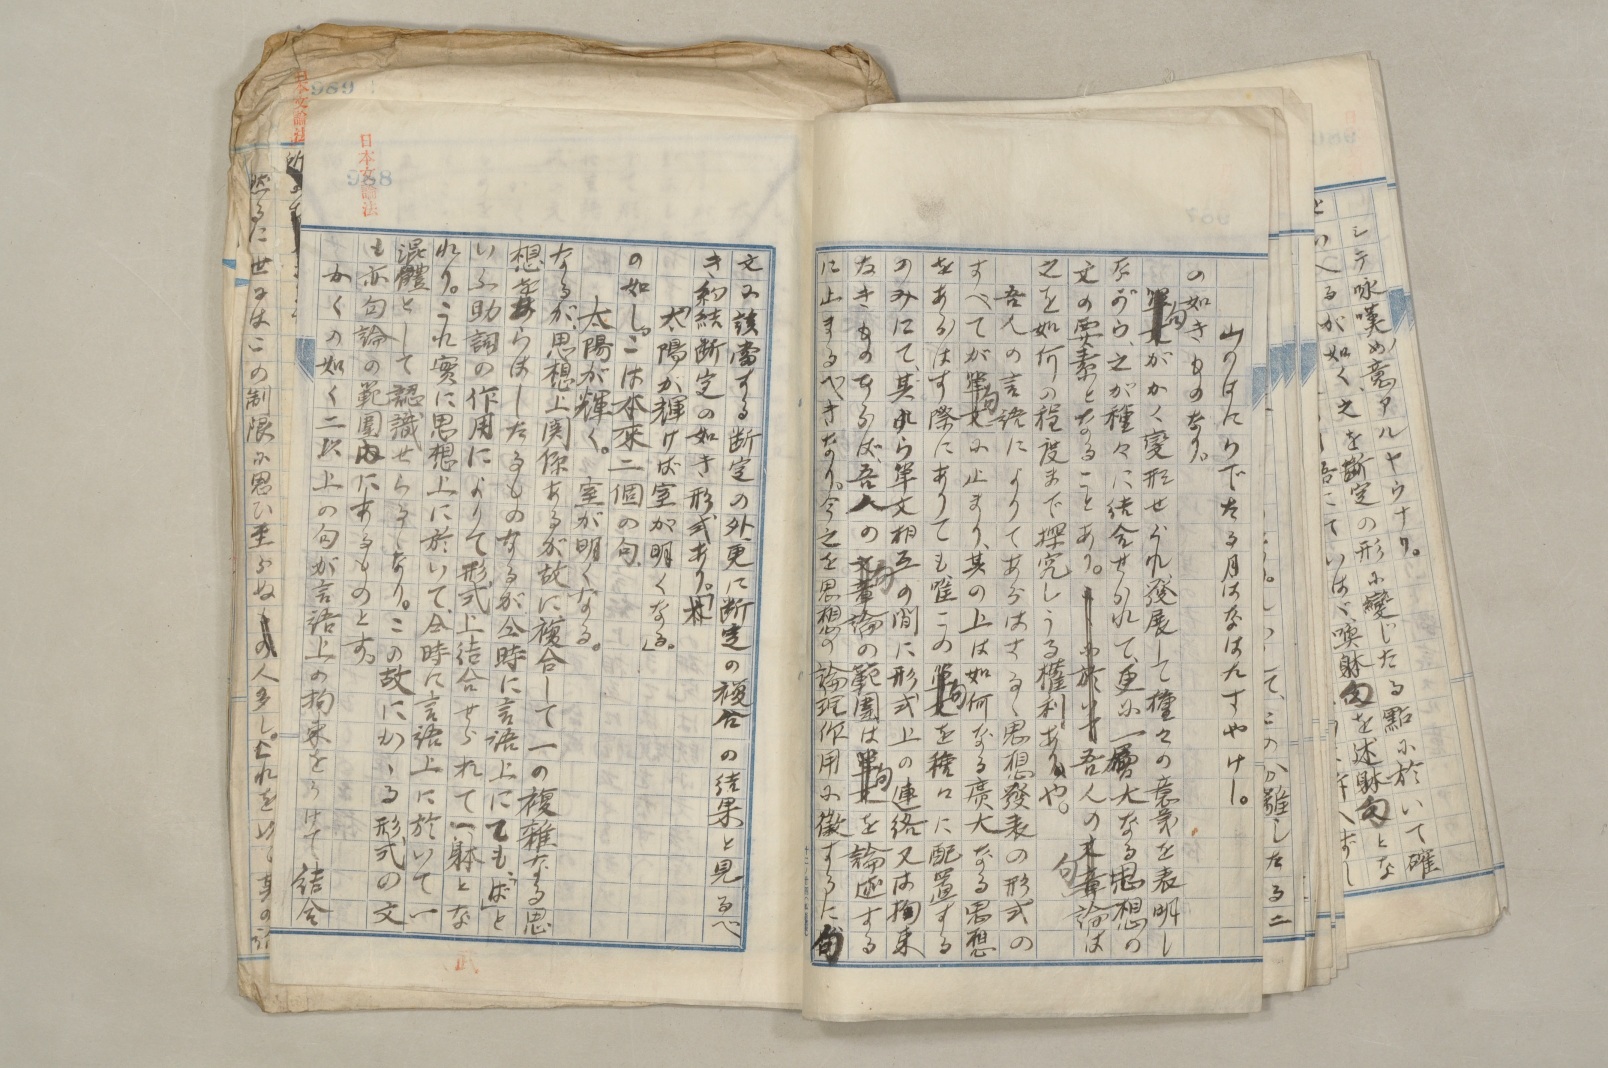 シテ咏嘆の意アルヤウナリ。
の形に變じたる點に於いて確
といへるが如く之を斷定
喚躰句を述躰句とな
山のはにいでたる月はなはたすやけし。
の如きものなり。
句がかく變形せられ發展して種々の意義を表明し
ながら、之が種々に結合せられて、更に一層大なる思想の
文の要素となることあり。吾人の句論は
之を如何の程度まで探究しうる權利ありや。
吾人の言語によりてあらはさるゝ思想發表の形式の
すべてが單句に止まり、其の上は如何なる廣大なる思想
をあらはす際にありても唯この句を種々に配置する
のみにて、其れら單文相互の間に形式上の連絡又は拘束
なきものならば、吾人の句論の範圍は單句を論述する
に止まるべきなり。今之を思想の論理作用に徴するに句
文に該當する斷定の外更に斷定の複合の結果と見るべ
き約結斷定の如き形式あり。
「太陽が輝けば室が明くなる。」
の如し。こは本來二個の句
太陽が輝く。室が明くなる。
なるが、思想上關係あるが故に複合して一の複雜なる思
想をあらはしたるものなるが仝時に言語上にても、「ば」と
いふ助詞の作用によりて形式上結合せられて一躰とな
れり。これ實に思想上に於いて、仝時に言語上に於いて一
混體として認識せらるゝなり。この故にかゝる形式の文
も亦句論の範圍内にあるものとす。
かくの如く二以上の句が言語上の拘束をうけて結合
日本文論法
988
然るに世にはこの制限に思ひ至らぬ人多し。これを以て
日本文論法
989